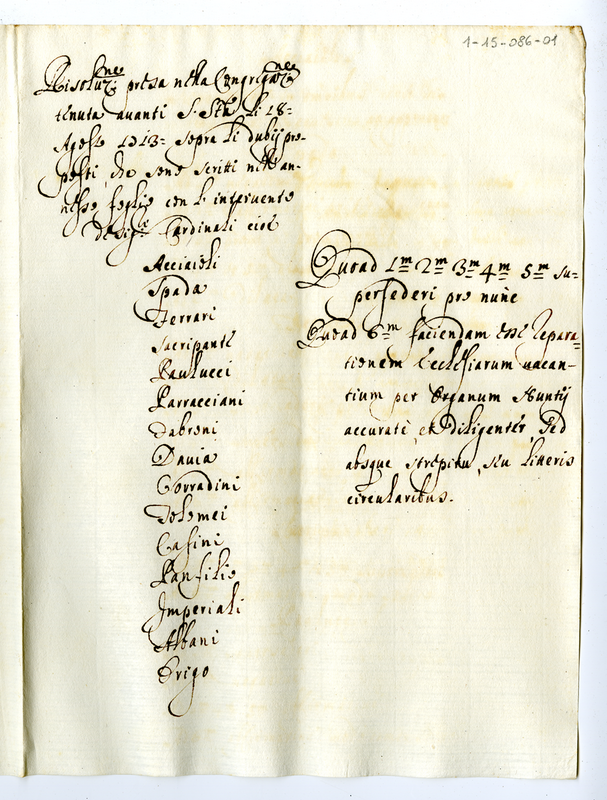 1-15-086-01
Risoluz.ne presa nella Congregaz.ne
tenuta avanti S. Stà li 28=
Agosto 1713= sopra li dubij pro-
posti, che sono scritti nell'an-
nesso foglio con l'intervento
de Sig.ri Cardinali cioè
Acciaioli
Spada
Ferrari
Sacripante
Paulucci
Parracciani
Fabroni
Davia
Corradini
Tolomei
Casini
Panfilio
Imperiali
Albani
Origo
Quoad 1m 2m 3m 4m 5m su-
persederi pro nunc
Quoad 6m faciendam esse Separa=
tionem Ecclesiarum vacan-
tium per Organum Nuntij
accuratè, et diligenter, sed
absque strepitu, seu litteris
circularibus.